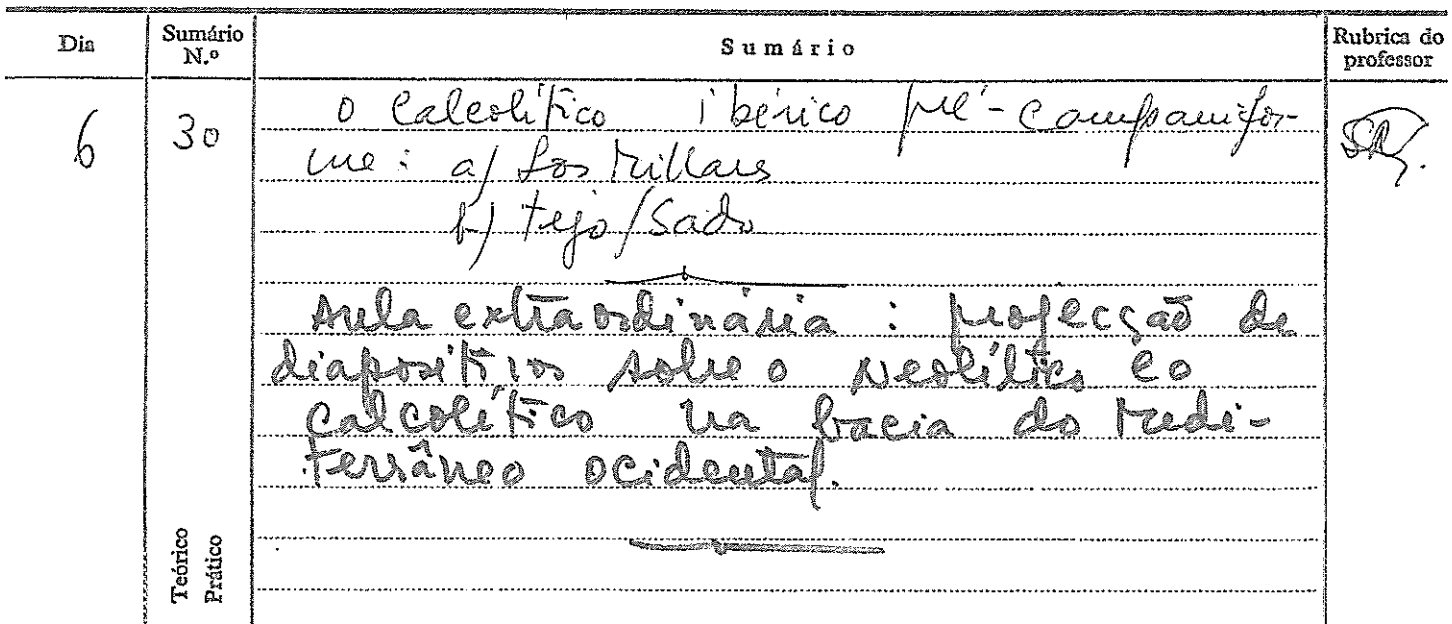 Dia Sumário N.º Sumário Rubrica do professor
6 30 O Calcolítico ibérico pré-Campanifor-
me: a) Los Millares
b) Tejo/Sado
Aula extraordinária: projecção de
diapositivos sobre o Neolítico e o
Calcolítico na bacia do Medi-
terrâneo ocidental.
Teórico
Prático